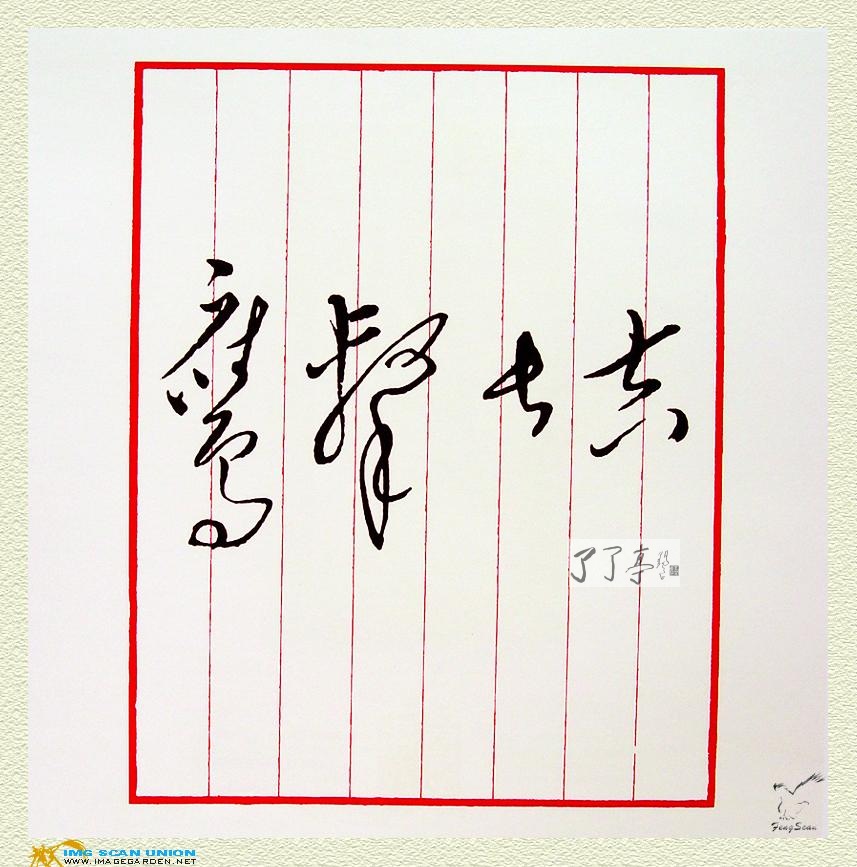 鷹擊長空
了了亭
FengScan
IMG SCAN UNION
WWW.IMAGEGARDEN.NET